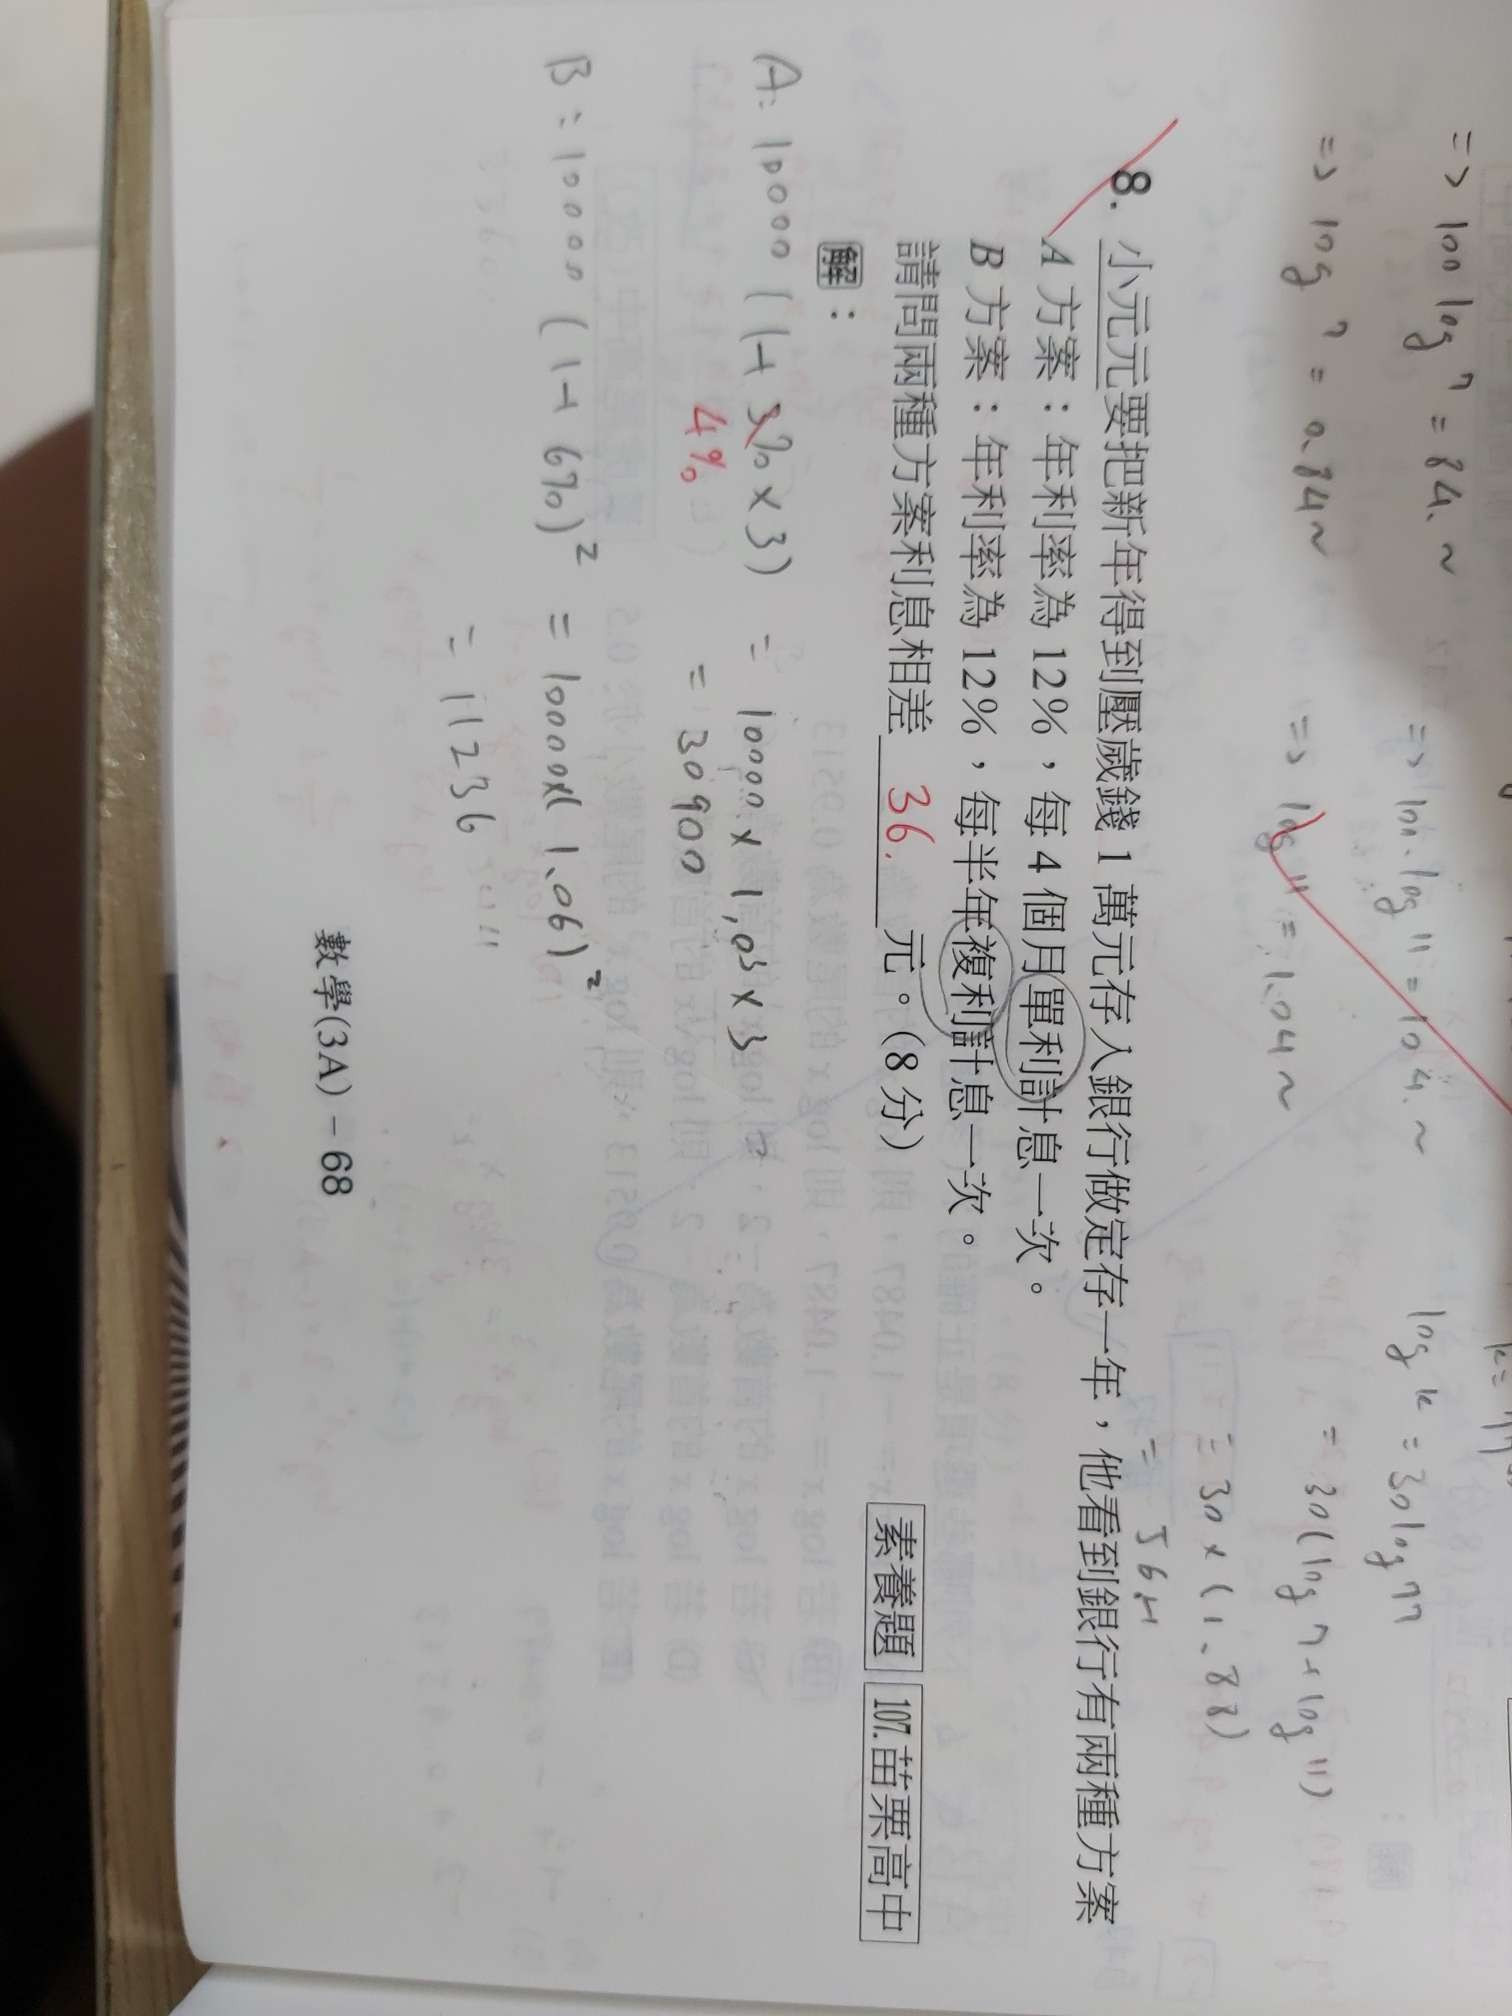 => 100 log 7 = 84. ~
=> log 7 = 0.84 ~
=> 100. log 11 = 104. ~
=> log 11 = 1.04 ~
log k = 30 log 77
= 30 (log 7 + log 11)
= 30 × (1.88)
= 56.4
8. 小元元要把新年得到壓歲錢 1 萬元存入銀行做定存一年,他看到銀行有兩種方案
A 方案:年利率為 12%,每 4 個月單利計息一次。
B 方案:年利率為 12%,每半年複利計息一次。
請問兩種方案利息相差 36. 元。(8 分)
素養題 107.苗栗高中
解:
A: 10000 (1+3%×3) = 10000 × 1.03 × 3
4%
= 30900
B: 10000 (1+6%)² = 10000×(1.06)²
= 11236
數學(3A)-68